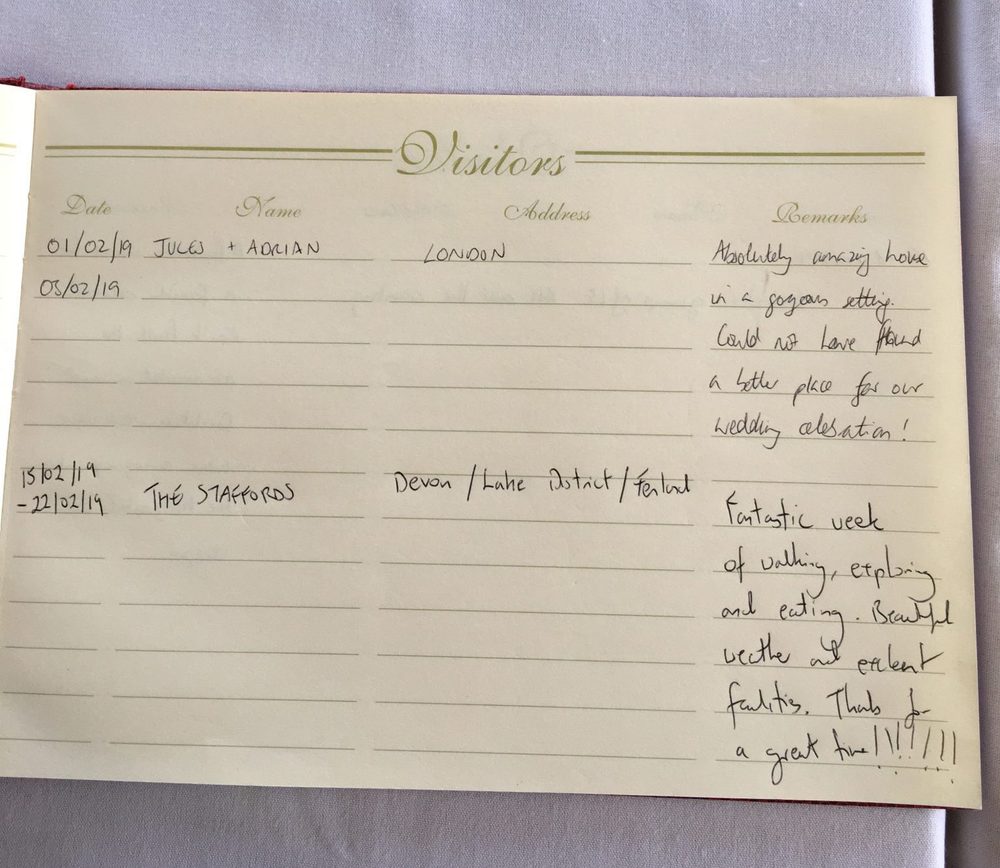 Visitors
Date Name Address Remarks
01/02/19 JULES + ADRIAN LONDON Absolutely amazing house
05/02/19 in a gorgeous setting.
Could not have found
a better place for our
wedding celebration!
15/02/19
- 22/02/19 THE STAFFORDS Devon / Lake District / Fenland
Fantastic week
of walking, exploring
and eating. Beautiful
weather and excellent
facilities. Thanks for
a great time!!!!!!!